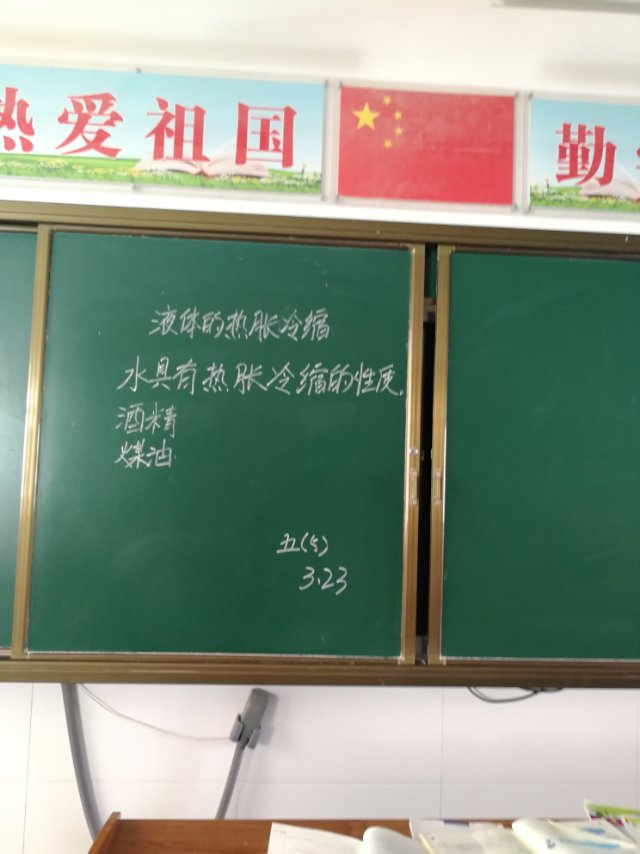 热爱祖国
勤
液体的热胀冷缩
水具有热胀冷缩的性质.
酒精
煤油
五(5)
3.23